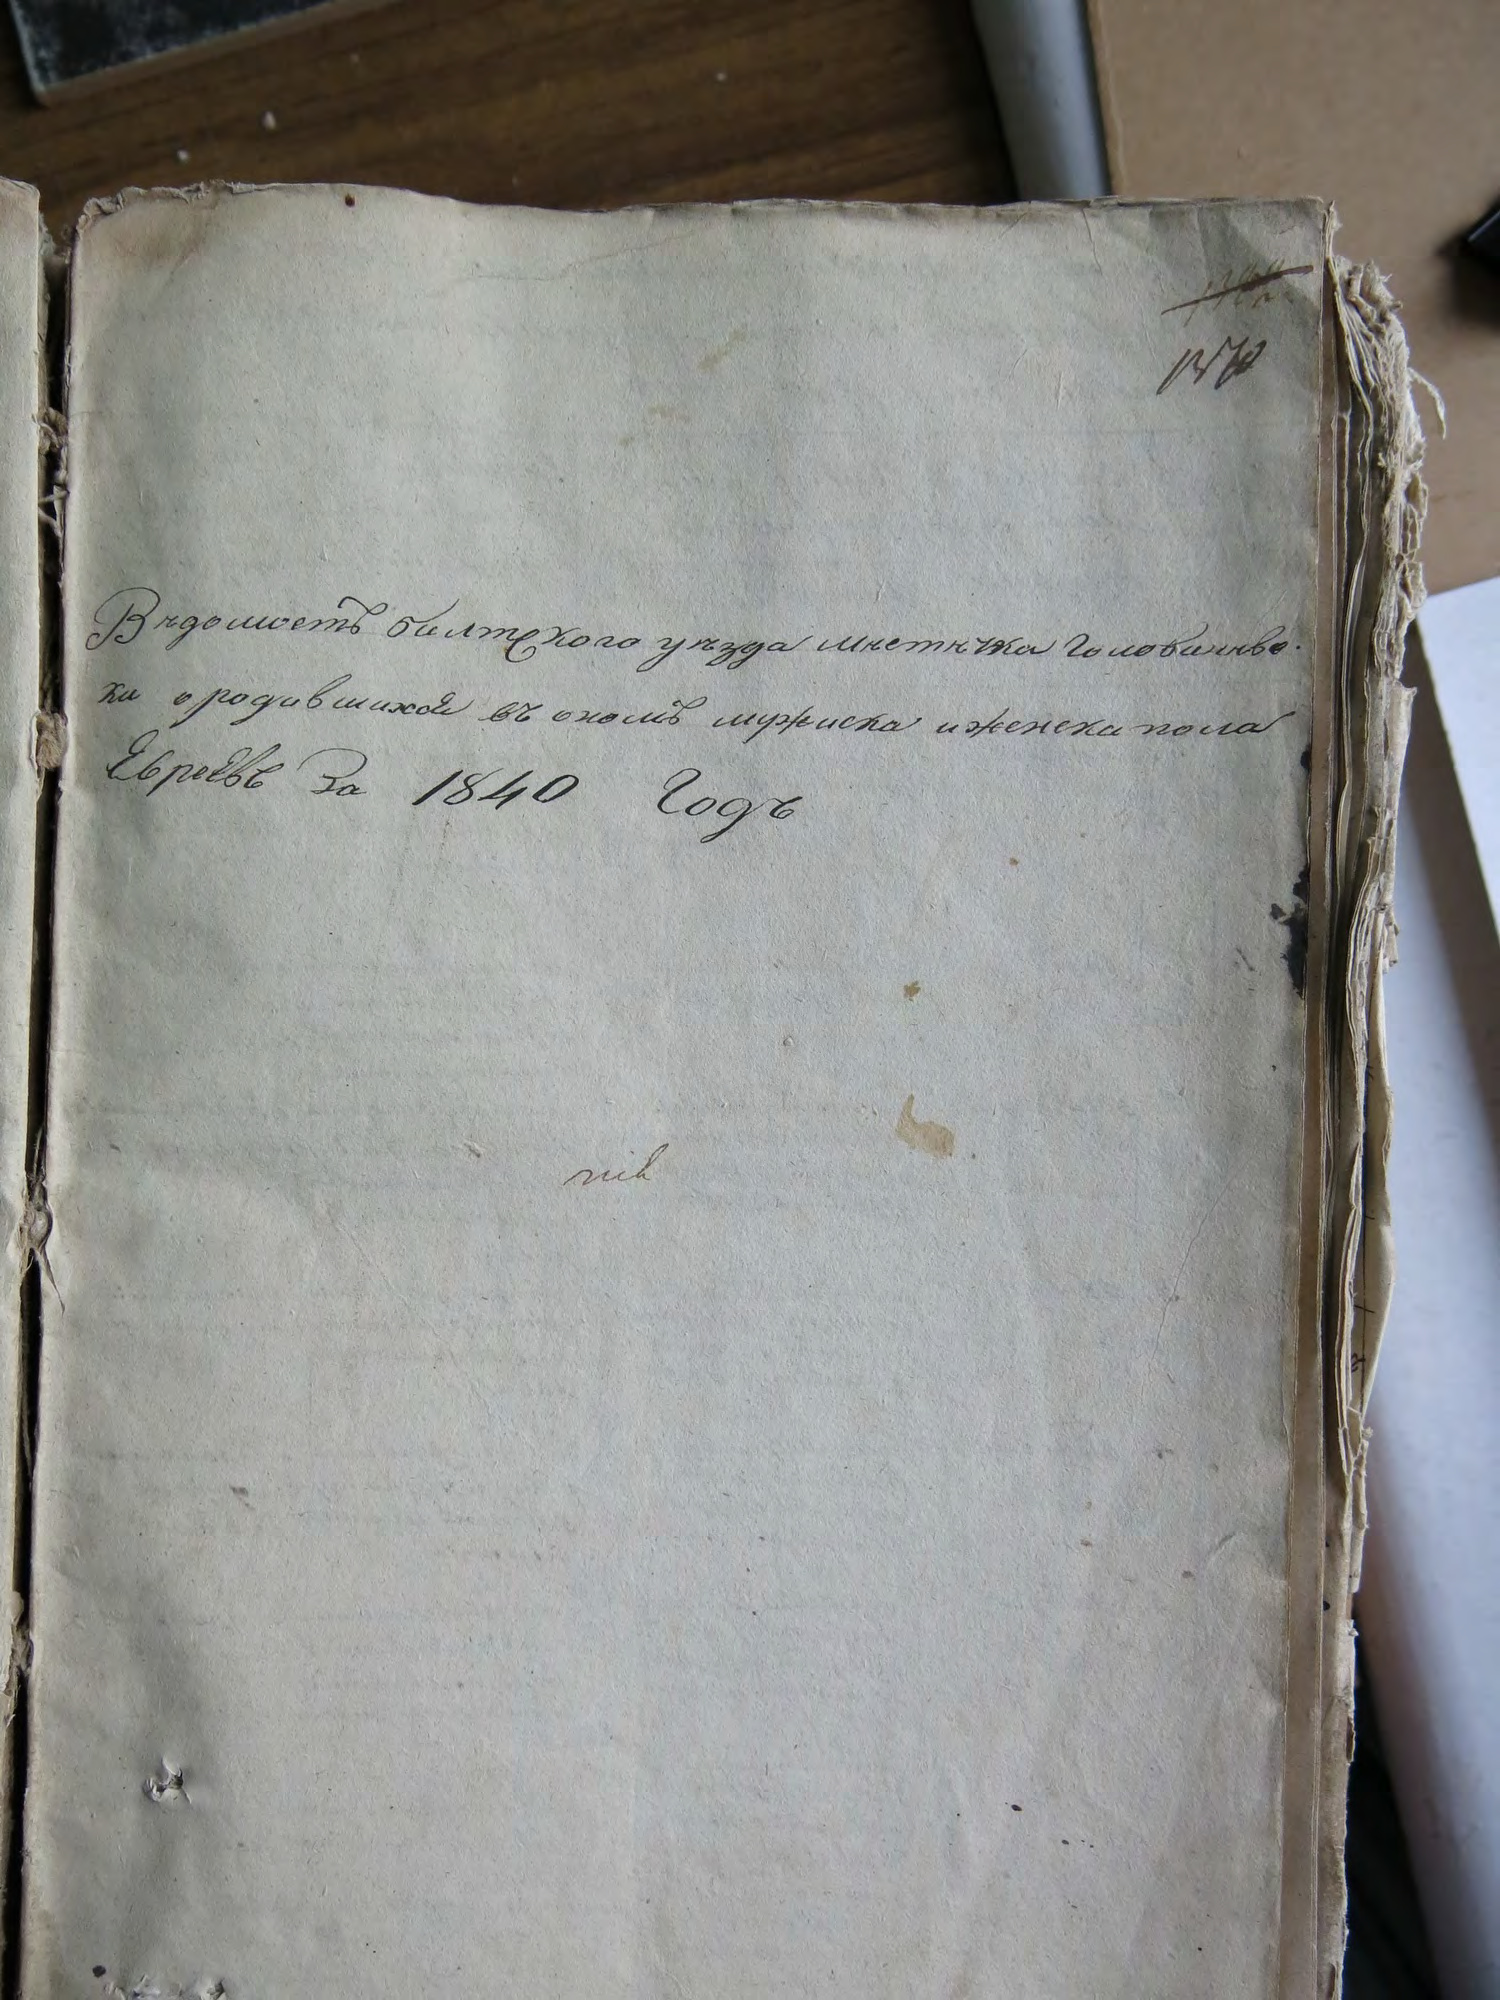 Вѣдомость балтского уѣзда мѣстѣчка Голованѣвс-
ка о родившихся въ ономъ мужиска и женска пола
Евреевъ За 1840 Годъ